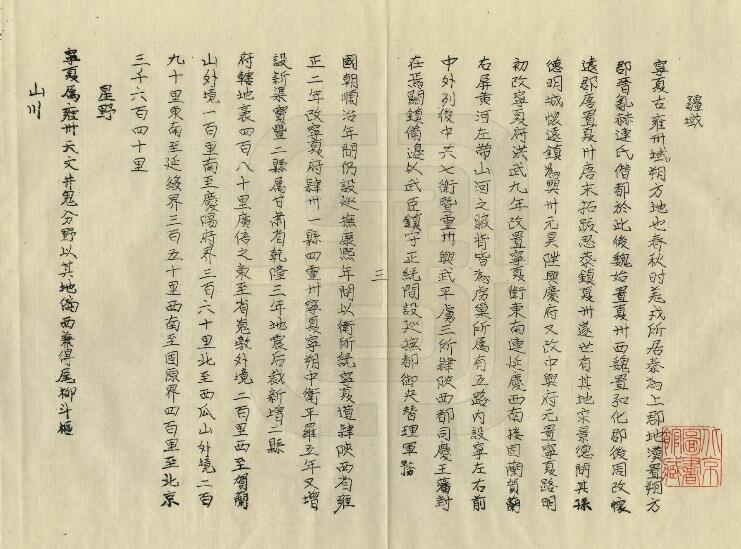 疆域
寧夏古雍州域朔方地也春秋時羌戎所居秦為上郡地漢置朔方
郡晉亂赫連氏僭都於此後魏始置夏州西魏置弘化郡後周改懷
遠郡唐置夏州唐末拓跋思恭鎮夏州遂世有其地宋景德間其孫
德明城懷遠鎮為興州元昊陞興慶府又改中興府元置寧夏路明
初改寧夏府洪武九年改置寧夏衛東南連延慶西南接固蘭賀蘭
右屏黃河左帶山河之服背皆為虜巢所属有五路內設寧左右前
中外列後中共七衛暨靈州興武平虜三所肄陝西都司慶王藩封
在焉嗣鎮備邊以武臣鎮守正統間設巡撫都御史替理軍務
三
國朝順治年間仍設巡撫康熙年間以衛所統寧夏道肄陝西省雍
正二年改寧夏府肄州一縣四靈州寧夏寧朔中衛平羅五年又增
設新渠寶豐二縣属甘肅省乾隆三年地震后裁新增二縣
府轄地袤四百八十里廣倍之東至省嵬墩外境二百里西至賀蘭
山外境一百里南至慶陽府界三百六十里北至西瓜山外境二百
九十里東南至延綏界三百五十里西南至固原界四百里至北京
三千六百四十里
星野
寧夏属雍州天文井鬼分野以其地偏西兼得尾柳斗樞
山川